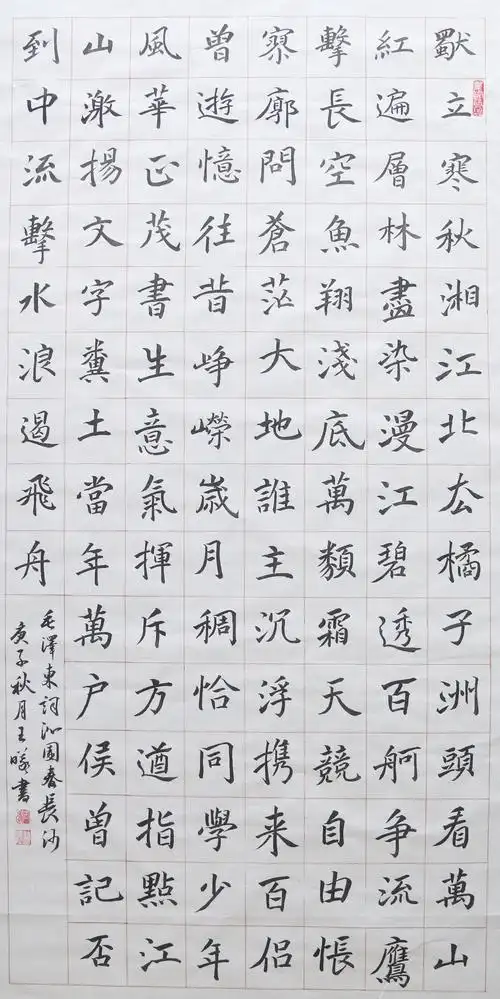 獸立寒秋湘江北去橘子洲頭看萬山
紅遍層林盡染漫江碧透百舸争流鷹
擊長空魚翔淺底萬類霜天競自由悵
寥廓問蒼茫大地誰主沉浮携来百侣
曾遊憶往昔崢嶸歲月稠恰同學少年
風華正茂書生意氣揮斥方遒指點江
山激揚文字糞土當年萬户侯曾記否
到中流擊水浪遏飛舟
毛澤東詞沁園春長沙
庚子秋月王曦書